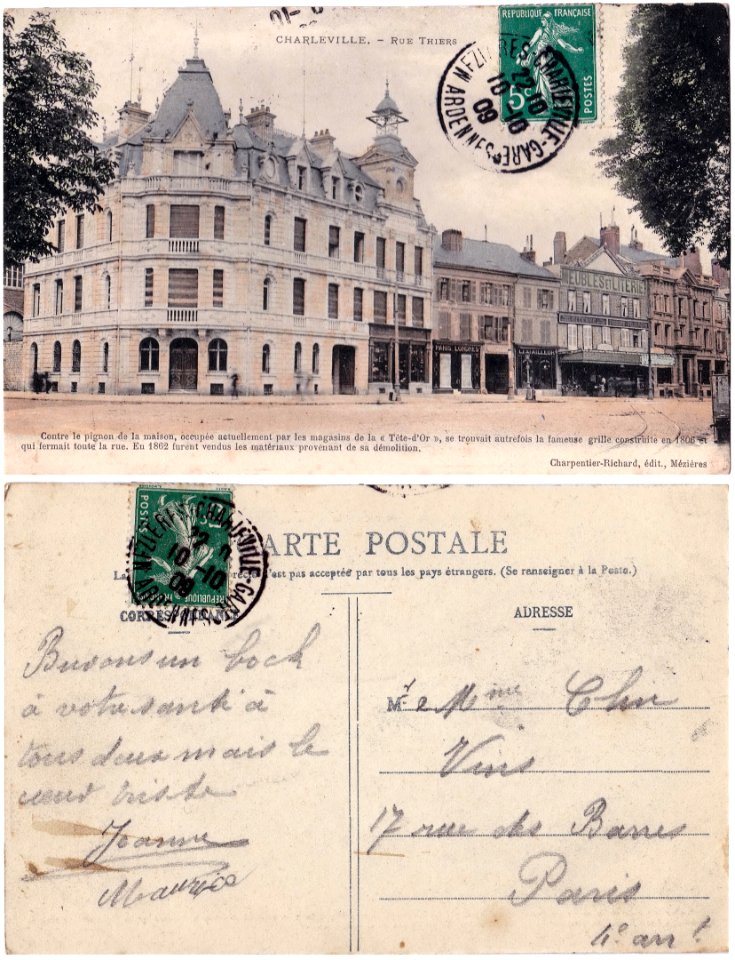 CHARLEVILLE. — RUE THIERS
RÉPUBLIQUE FRANÇAISE
5c
POSTES
MEZIERES-CHARLEVILLE-GARE
22-10
10-10
09
ARDENNES
MEUBLES ET LITERIE
PARIS LONDRES
Contre le pignon de la maison, occupée actuellement par les magasins de la « Tête-d'Or », se trouvait autrefois la fameuse grille construite en 1806 et
qui fermait toute la rue. En 1862 furent vendus les matériaux provenant de sa démolition.
Charpentier-Richard, édit., Mézières
CARTE POSTALE
n'est pas acceptée par tous les pays étrangers. (Se renseigner à la Poste.)
POSTES
RÉPUBLIQUE
MEZIERES-CHARLEVILLE-GARE
10-10
09
CORRESPONDANCE
ADRESSE
Buvons un bock
à votre santé à
tous deux mais le
cœur triste
Jeanne
Maurice
M. e Mme
Vins
17 rue des Barres
Paris
4e arrt